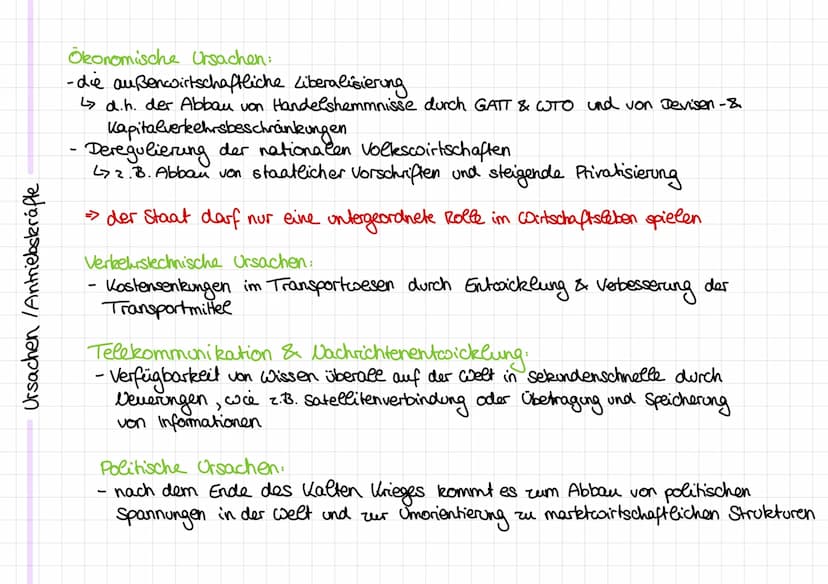 Ursachen / Antriebskräfte
Ökonomische Ursachen:
- die außenwirtschaftliche Liberalisierung
↳ d.h. der Abbau von Handelshemmnisse durch GATT & WTO und von Devisen- &
Kapitalverkehrsbeschränkungen
- Deregulierung der nationalen Volkswirtschaften
↳ z.B. Abbau von staatlicher Vorschriften und steigende Privatisierung
⇒ der Staat darf nur eine untergeordnete Rolle im Wirtschaftsleben spielen
Verkehrstechnische Ursachen:
- Kostensenkungen im Transportwesen durch Entwicklung & Verbesserung der
Transportmittel
Telekommunikation & Nachrichtenentwicklung:
- Verfügbarkeit von Wissen überall auf der Welt in sekundenschnelle durch
Neuerungen, wie z.B. Satellitenverbindung oder Übetragung und Speicherung
von Informationen
Politische Ursachen:
- nach dem Ende des Kalten Krieges kommt es zum Abbau von politischen
Spannungen in der Welt und zur Umorientierung zu marktwirtschaftlichen Strukturen